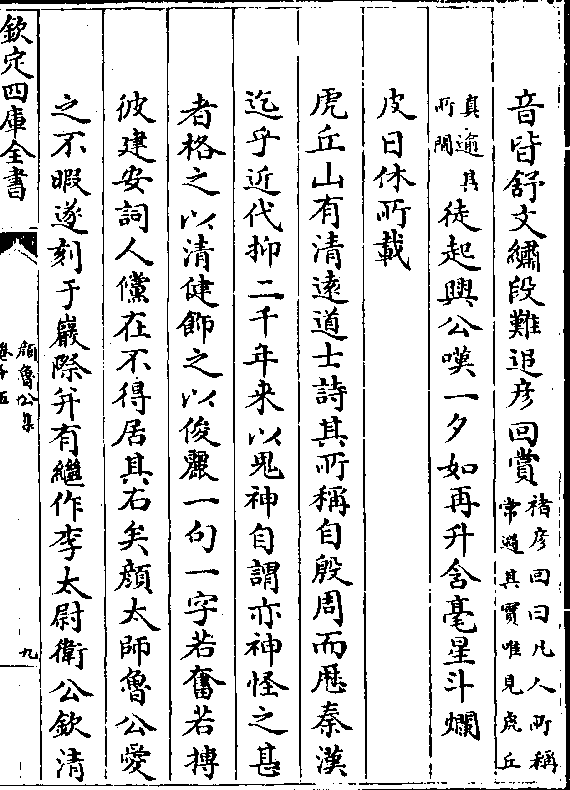 音皆舒文繡段難追彦回賞褚彦回曰凡人所稱
常過其實唯見虎丘
真逾其
所聞徒起興公嘆一夕如再升含毫星斗爛
皮日休所載
虎丘山有清遠道士詩其所稱自殷周而厯秦漢
迄乎近代抑二千年来以鬼神自謂亦神怪之甚
者格之以清健飾之以俊麗一句一字若奮若摶
彼建安詞人儻在不得居其右矣顔太師魯公愛
之不暇遂刻于巖際并有繼作李太尉衛公欽清
欽定四庫全書
顔魯公集
卷十五
九